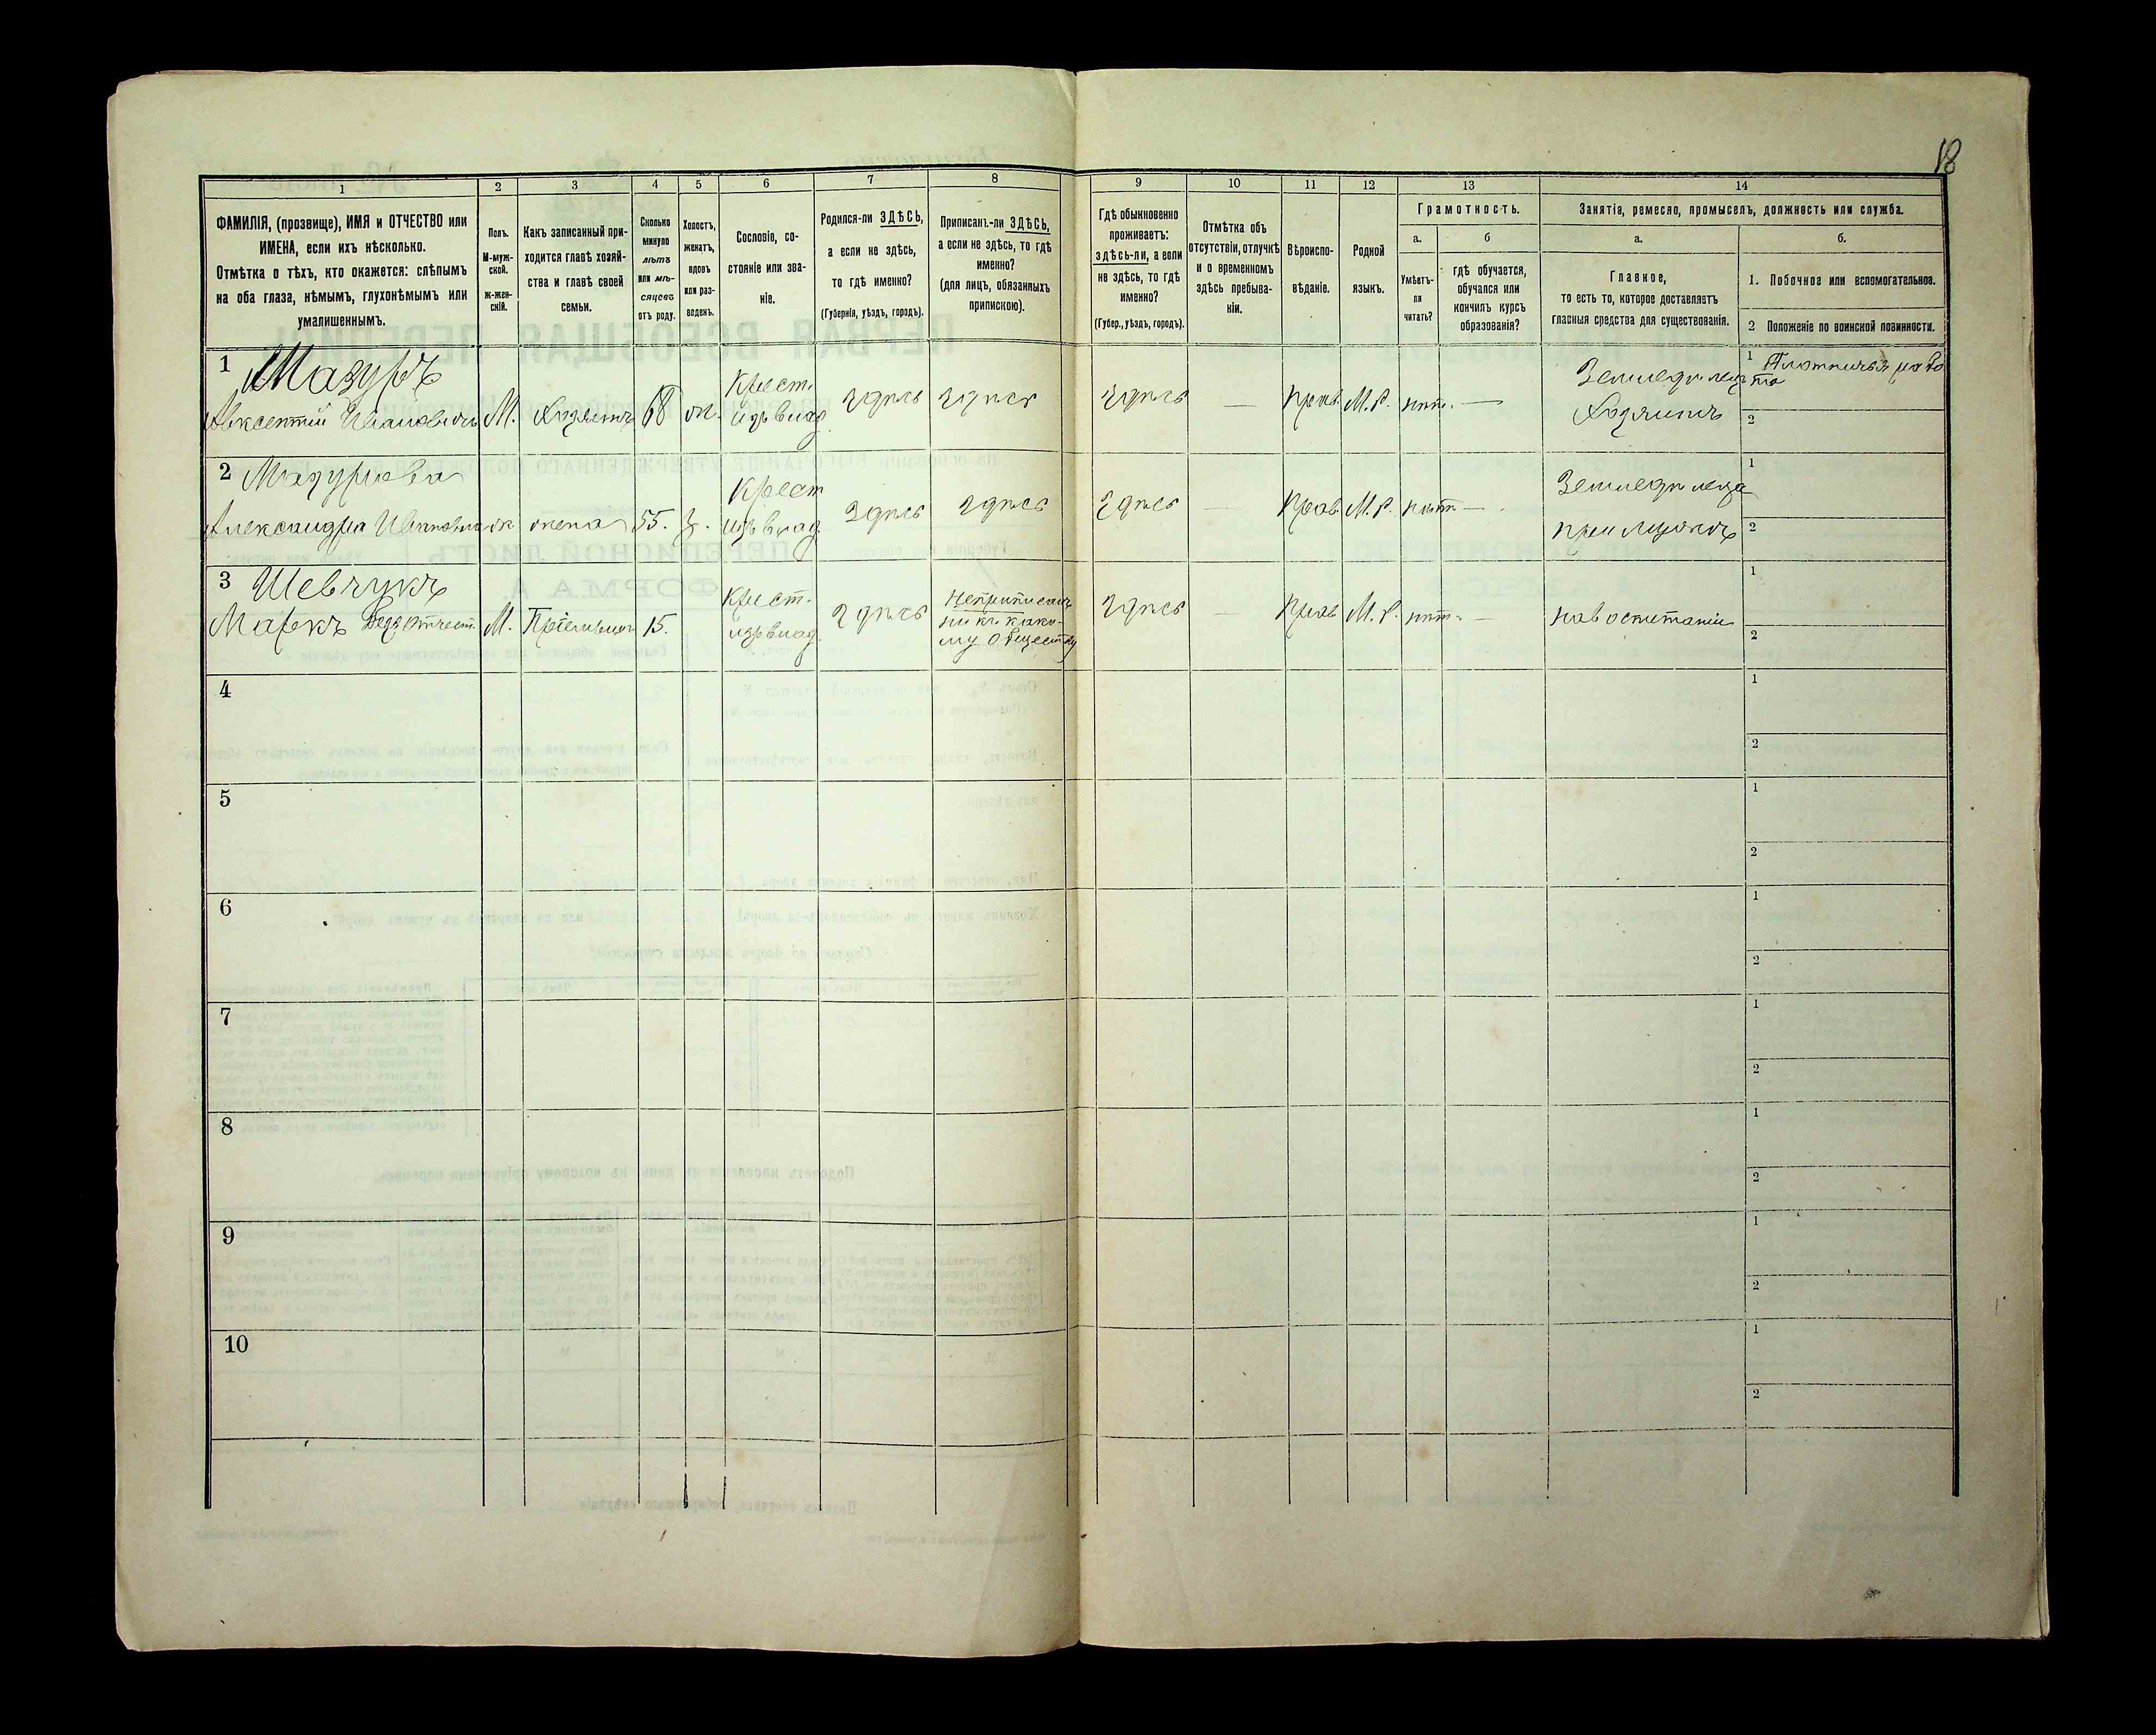 18
1 2 3 4 5 6 7 8 9 10 11 12 13 14
ФАМИЛІЯ, (прозвище), ИМЯ и ОТЧЕСТВО или
ИМЕНА, если ихъ нѣсколько.
Отмѣтка о тѣхъ, кто окажется: слѣпымъ
на оба глаза, нѣмымъ, глухонѣмымъ или
умалишеннымъ.
Полъ.
М-муж-
ской.
ж-жен-
скій.
Какъ записанный при-
ходится главѣ хозяй-
ства и главѣ своей
семьи.
Сколько
минуло
лѣтъ
или мѣ-
сяцевъ
отъ роду.
Холостъ,
женатъ,
вдовъ
или раз-
веденъ.
Сословіе, со-
стояніе или зва-
ніе.
Родился-ли ЗДѢСЬ,
а если не здѣсь,
то гдѣ именно?
(Губернія, уѣздъ, городъ).
Приписанъ-ли ЗДѢСЬ,
а если не здѣсь, то гдѣ
именно?
(для лицъ, обязанныхъ
припискою).
Гдѣ обыкновенно
проживаетъ:
здѣсь-ли, а если
не здѣсь, то гдѣ
именно?
(Губер., уѣздъ, городъ).
Отмѣтка объ
отсутствіи, отлучкѣ
и о временномъ
здѣсь пребыва-
ніи.
Вѣроиспо-
вѣданіе.
Родной
языкъ.
Грамотность.
а.
Умѣетъ-
ли
читать?
б
гдѣ обучается,
обучался или
кончилъ курсъ
образованія?
Занятіе, ремесло, промыселъ, должность или служба.
а.
Главное,
то есть то, которое доставляетъ
главныя средства для существованія.
б.
1. Побочное или вспомогательное.
2 Положеніе по воинской повинности.
1 Мазуръ
Авксентій Ивановичъ
М.
Хозяинъ
68
ж.
Крест.
изъ влад.
Здѣсь
Здѣсь
Здѣсь
—
Прав.
М.Р.
нѣт.
—
Земледѣлецъ
Хозяинъ
1 Плотничья рабо
та
2
2 Мазурова
Александра Ивановна
ж
жена
55.
з.
Крест
изъ влад.
Здѣсь
Здѣсь
Здѣсь
—
Прав.
М.Р.
нѣт
—
Земледѣлица
при мужѣ
1
2
3 Шевчукъ
Маркъ Безъ отчест.
М.
Пріемышъ
15.
Крест.
изъ влад.
Здѣсь
Неприписанъ
ни къ како-
му обществу
Здѣсь
—
Прав.
М.Р.
нѣт.
—
на воспитаніи
1
2
4
1
2
5
1
2
6
1
2
7
1
2
8
1
2
9
1
2
10
1
2